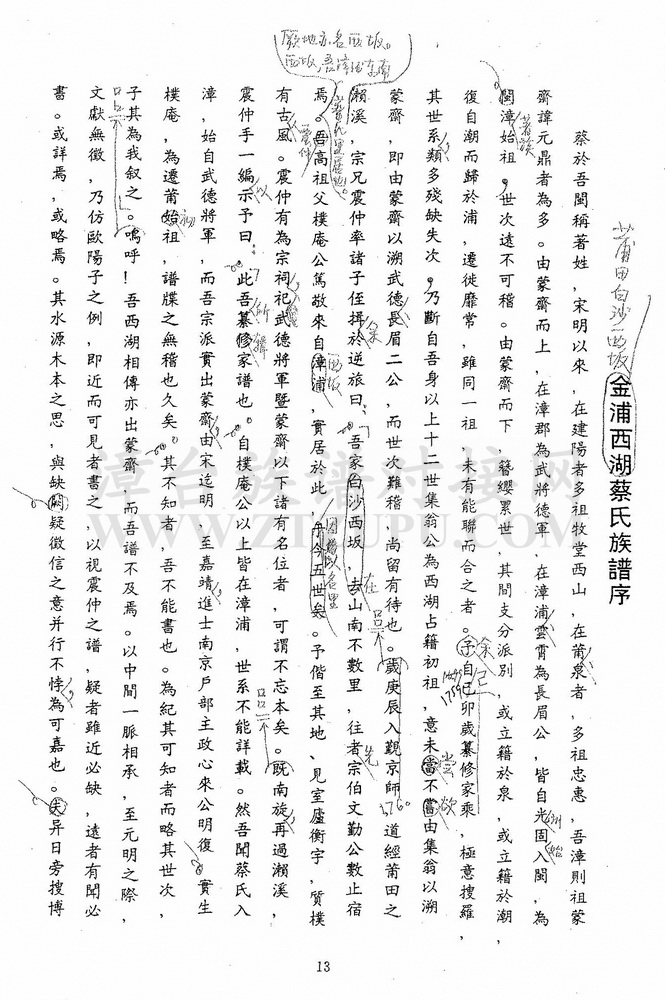 金浦西湖蔡氏族譜序
蔡於吾閩稱著姓，宋明以來，在建陽者多祖牧堂西山，在莆泉者，多祖忠惠，吾漳則祖蒙
齋諱元鼎者為多。由蒙齋而上，在漳郡為武將德軍，在漳浦雲霄為長眉公，皆自光固入閩，為
閩漳始祖。世次遠不可稽。由蒙齋而下，簪纓累世，其間支分派別，或立籍於泉，或立籍於潮，
復自潮而歸於浦，遷徙靡常，雖同一祖，未有能聯而合之者。予自己卯歲纂修家乘，極意搜羅，
其世系類多殘缺失次。乃斷自吾身以上十二世集翁公為西湖占籍初祖，意未當不嘗由集翁以溯
蒙齋，即由蒙齋以溯武德長眉二公，而世次難稽，尚留有待也。歲庚辰入覲京師，道經莆田之
瀨溪，宗兄震仲率諸子侄揖於逆旅曰：吾家白沙西坂，去山南不數里，往者宗伯文勤公數止宿
焉。吾高祖父樸庵公篤敬來自漳浦，實居於此，于今五世矣。予偕至其地、見室廬衡宇，質樸
有古風。震仲有為宗祠祀武德將軍暨蒙齋以下諸有名位者，可謂不忘本矣。既南旋再過瀨溪，
震仲手一編示予曰：此吾纂修家譜也。自樸庵公以上皆在漳浦，世系不能詳載。然吾聞蔡氏入
漳，始自武德將軍，而吾宗派實出蒙齋由宋迄明，至嘉靖進士南京戶部主政心來公明復，實生
樸庵，為遷莆始祖，譜牒之無稽也久矣。其不知者，吾不能書也。為紀其可知者而略其世次，
子其為我叙之。嗚呼！吾西湖相傳亦出蒙齋，而吾譜不及焉。以中間一脈相承，至元明之際，
文獻無徵，乃仿歐陽子之例，即近而可見者書之，以視震仲之譜，疑者雖近必缺，遠者有聞必
書。或詳焉，或略焉。其水源木本之思，與缺闕疑徵信之意并行不悖為可嘉也。夫异日旁搜博
莆田白沙西坂
1759
1760
13
漳台族譜对接网